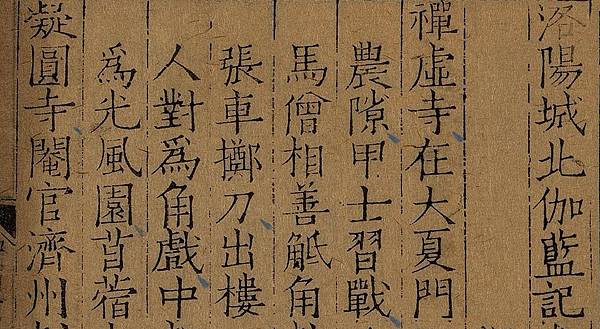 洛陽城北伽藍記
禪虛寺在大夏門
農隙甲士習戰
馬僧相善觝角
張車擲刀出樓
人對為角戲中
為光風園苜蓿
凝圓寺閹官濟州